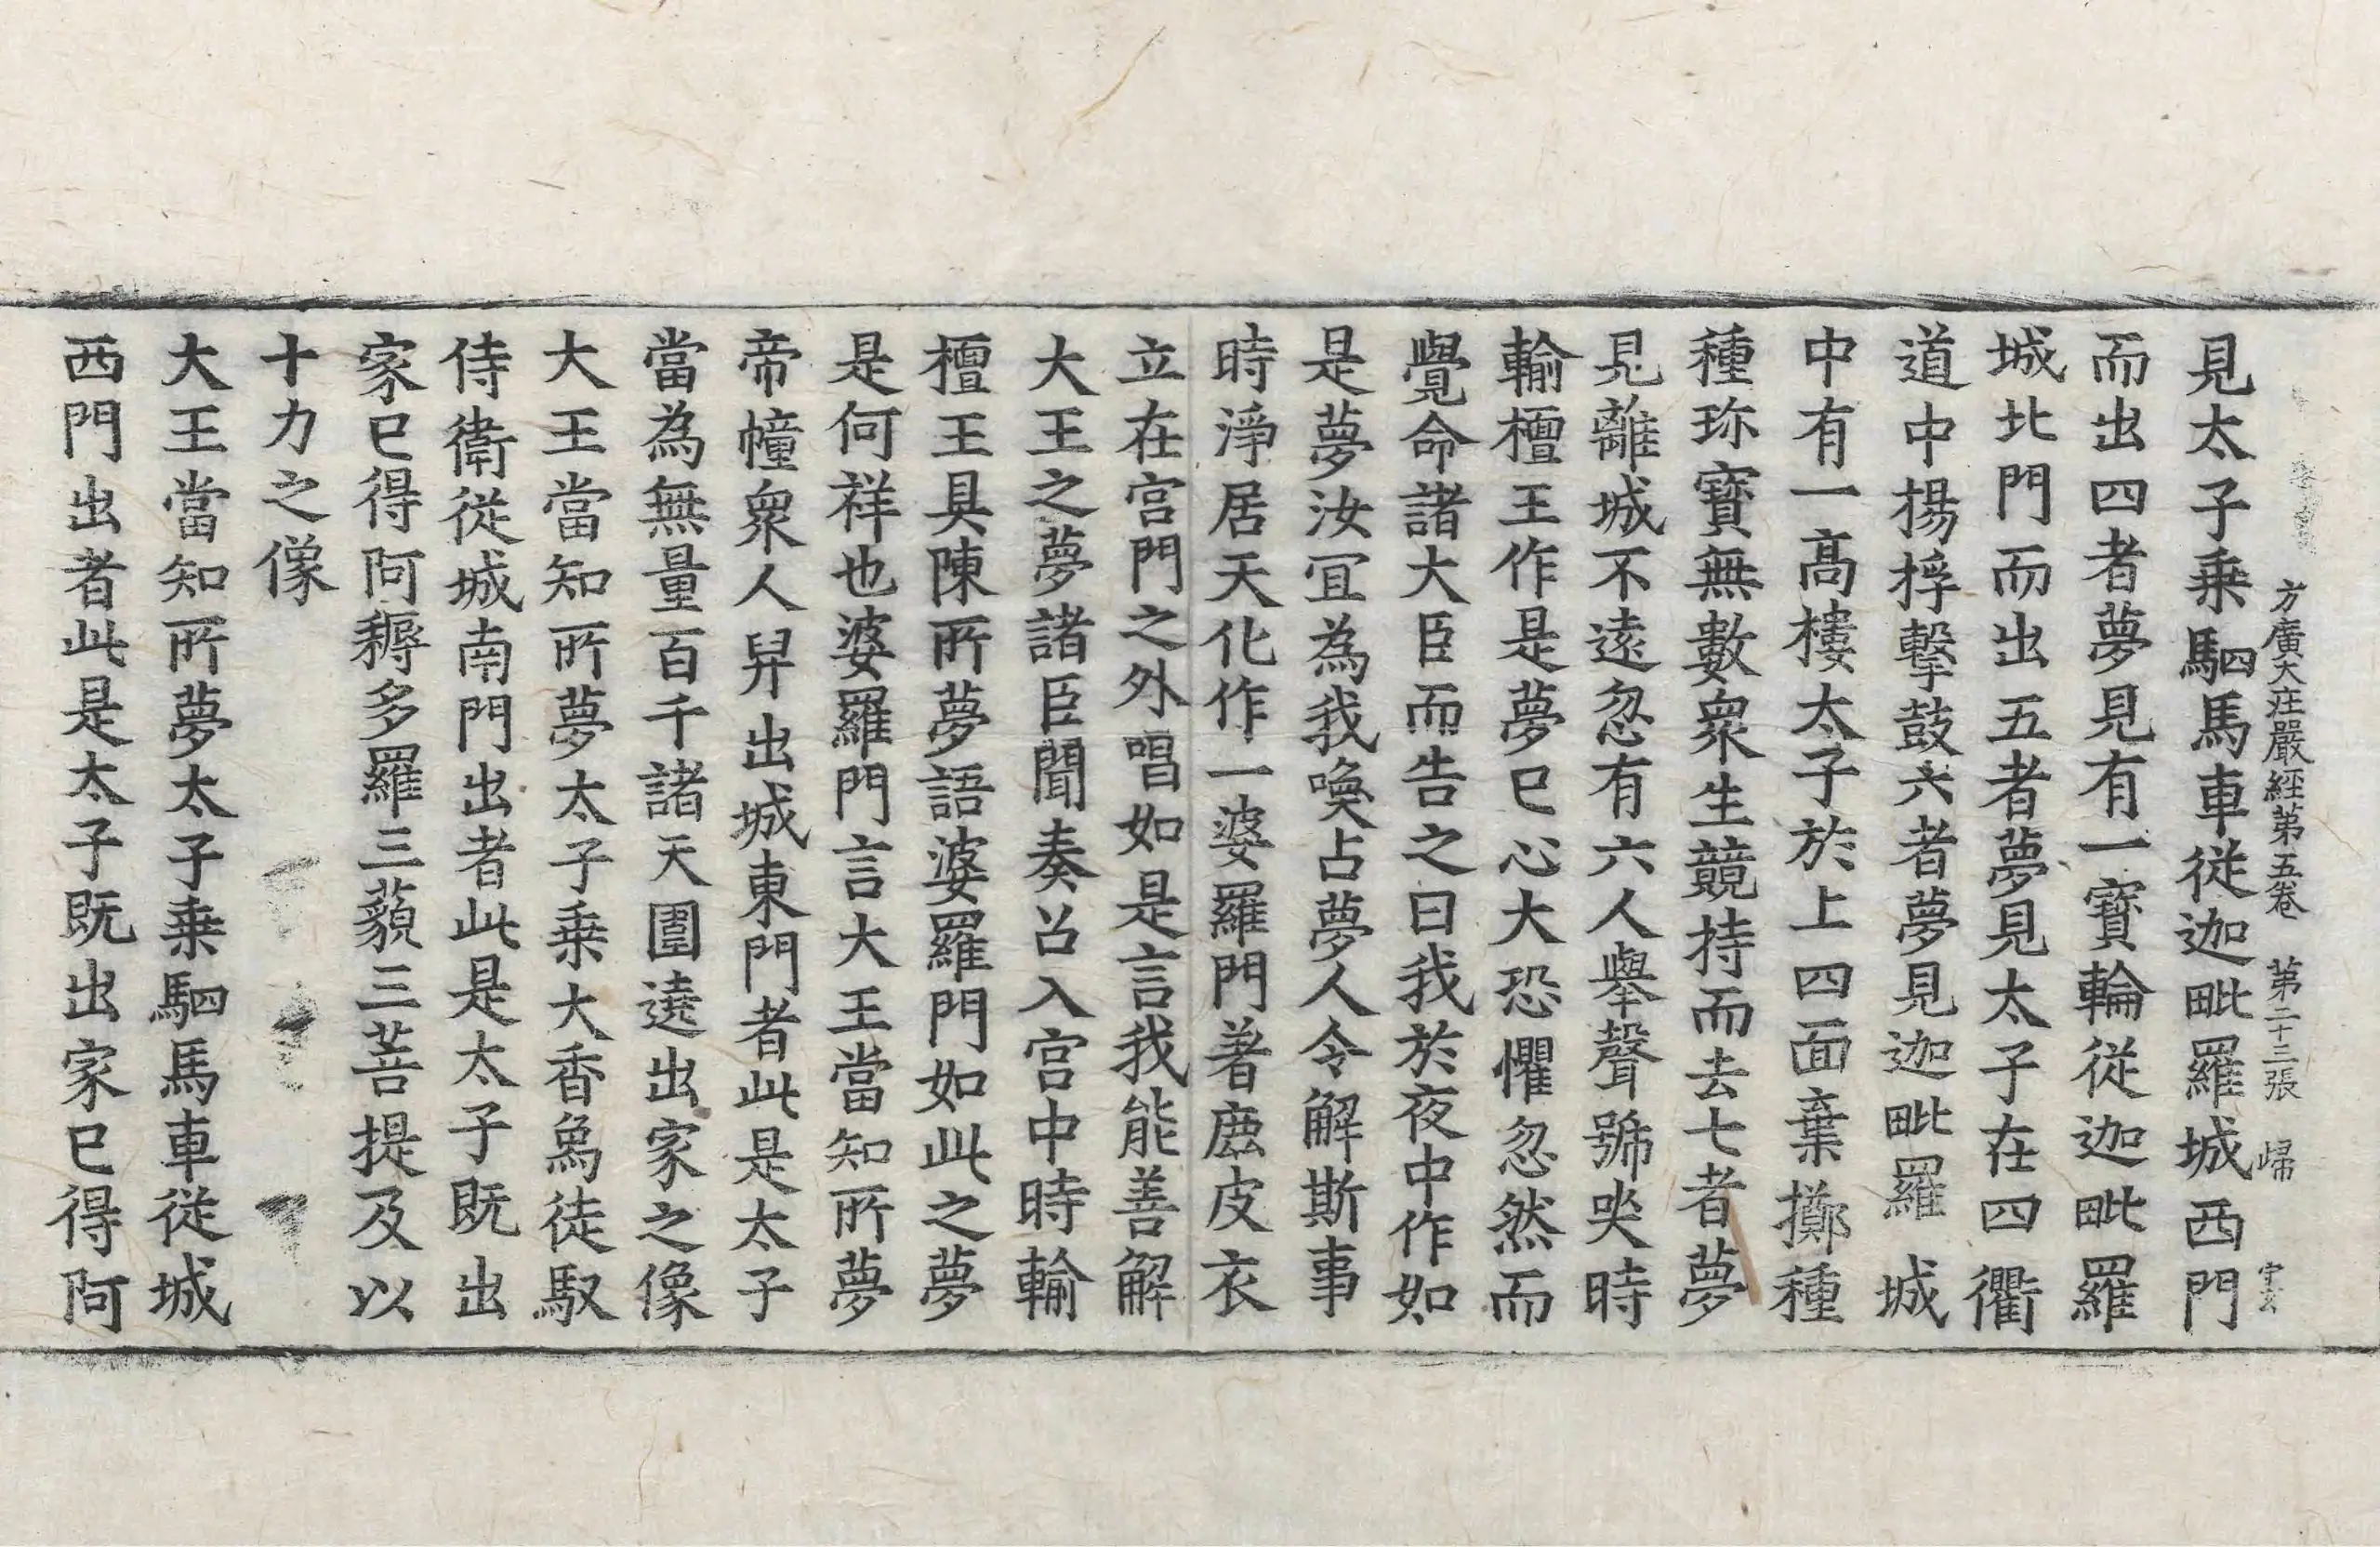 方廣大莊嚴經第五卷 第二十三張 歸
見太子乗駟馬車從迦毗羅城西門
而出四者夢見有一寶輪從迦毗羅
城北門而出五者夢見太子在四衢
道中揚桴擊鼓六者夢見迦毗羅城
中有一高樓太子於上四面棄擲種
種珎寶無數衆生競持而去七者夢
見離城不遠忽有六人舉聲號哭時
輸檀王作是夢已心大恐懼忽然而
覺命諸大臣而告之曰我於夜中作如
是夢汝冝為我喚占夢人令解斯事
時淨居天化作一婆羅門著鹿皮衣
立在宮門之外唱如是言我能善解
大王之夢諸臣聞奏召入宮中時輸
檀王具陳所夢語婆羅門如此之夢
是何祥也婆羅門言大王當知所夢
帝幢衆人舁出城東門者此是太子
當為無量百千諸天圍遶出家之像
大王當知所夢太子乗大香象徒馭
侍衛從城南門出者此是太子既出
家已得阿耨多羅三藐三菩提及以
十力之像
大王當知所夢太子乗駟馬車從城
西門出者此是太子既出家已得阿